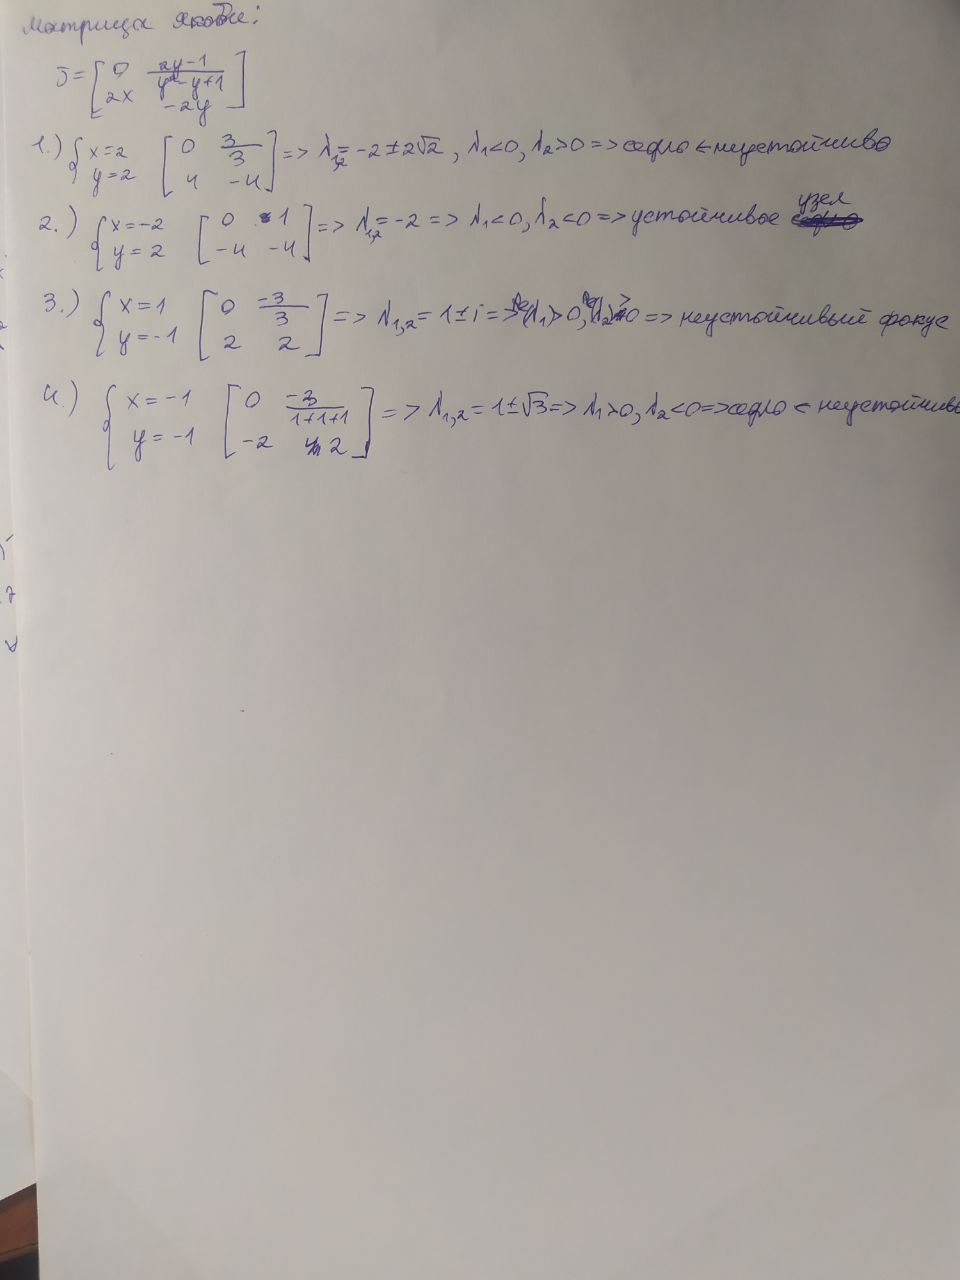 Матрица Якоби:
J = [ 0 (2y-1)/(y²-y+1) ; 2x -2y ]
1.) { x=2 y=2 [ 0 3/3 ; 4 -4 ] => λ1,2 = -2±2√2, λ1<0, λ2>0 => седло ← неустойчиво
2.) { x=-2 y=2 [ 0 1 ; -4 -4 ] => λ1,2 = -2 => λ1<0, λ2<0 => устойчивое узел
3.) { x=1 y=-1 [ 0 -3/3 ; 2 2 ] => λ1,2 = 1±i => Re(λ1)>0, Re(λ2)>0 => неустойчивый фокус
4.) { x=-1 y=-1 [ 0 -3/(1+1+1) ; -2 2 ] => λ1,2 = 1±√3 => λ1>0, λ2<0 => седло ← неустойчиво